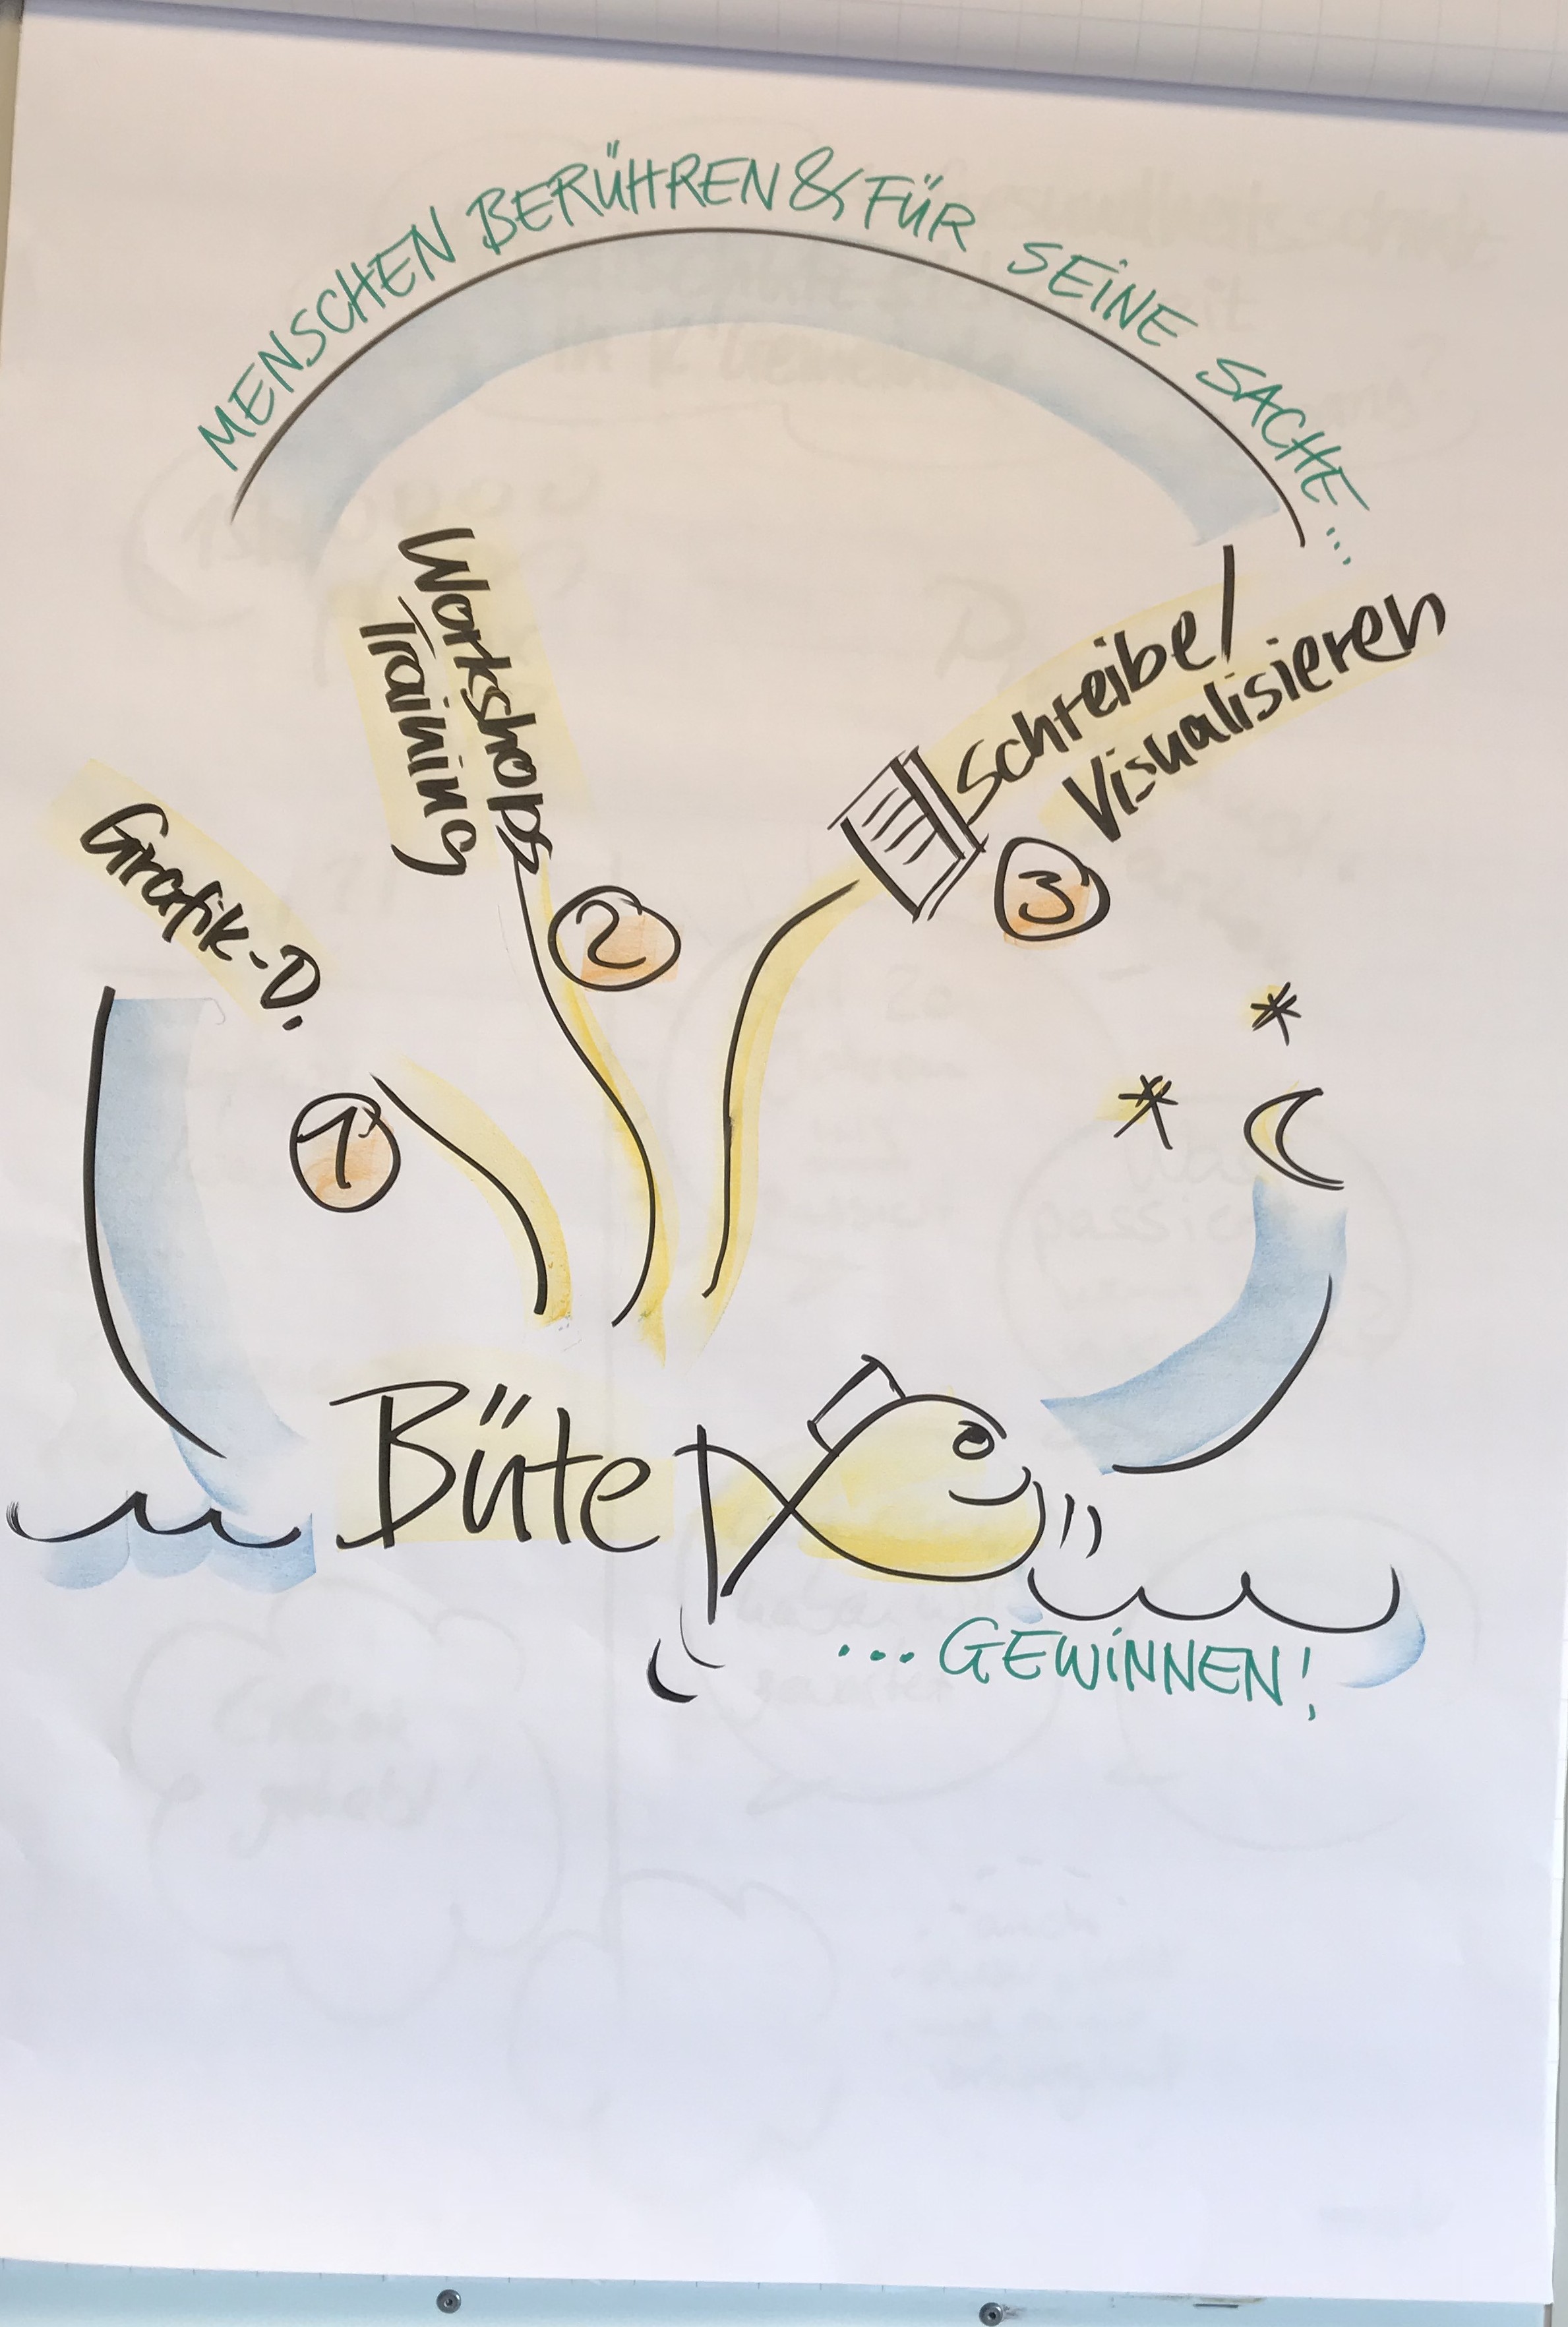 MENSCHEN BERÜHREN & FÜR SEINE SACHE...
Workshops
Training
Schreibe/
Visualisieren
Grafik-D.
1
2
3
Büte
...GEWINNEN!